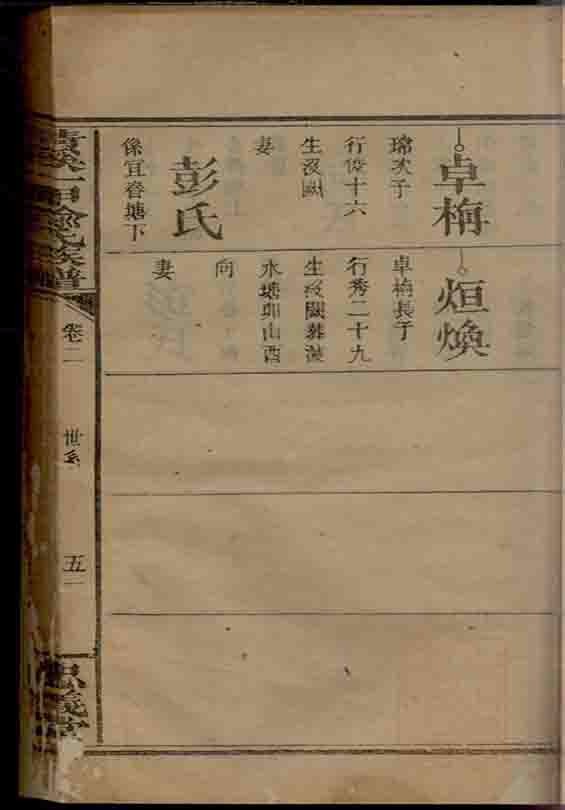 卓梅
瑞次子
行俊十六
生沒闕
妻
彭氏
係宜春塘下
烜煥
卓梅長子
行秀二十九
生歿闕葬漠
水塘卯山酉
向
妻
卷二
世系
五一